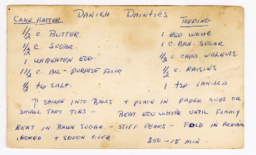 DANISH DAINTIES
CAKE BATTER.
TOPPING
1/2 c BUTTER.
1/2 c. SUGAR
1 UNBEATEN EGG.
1 1/2 c ALL-PURPOSE FLOUR
1/2 tsp SALT.
1 EGG WHITE
1 C BRN. SUGAR
1/2 c CHOP WALNUTS
1/2 c RAISINS
1 tsp VANILLA
INTO BALLS + PLACE IN PAPER CUPS OR
SMALL TART TINS - BEAT EGG WHITE UNTIL FOAMY
BEAT IN BRWN SUGAR - STIFF PEAKS - FOLD IN
+ SPOON OVER. 350 - 15 MIN